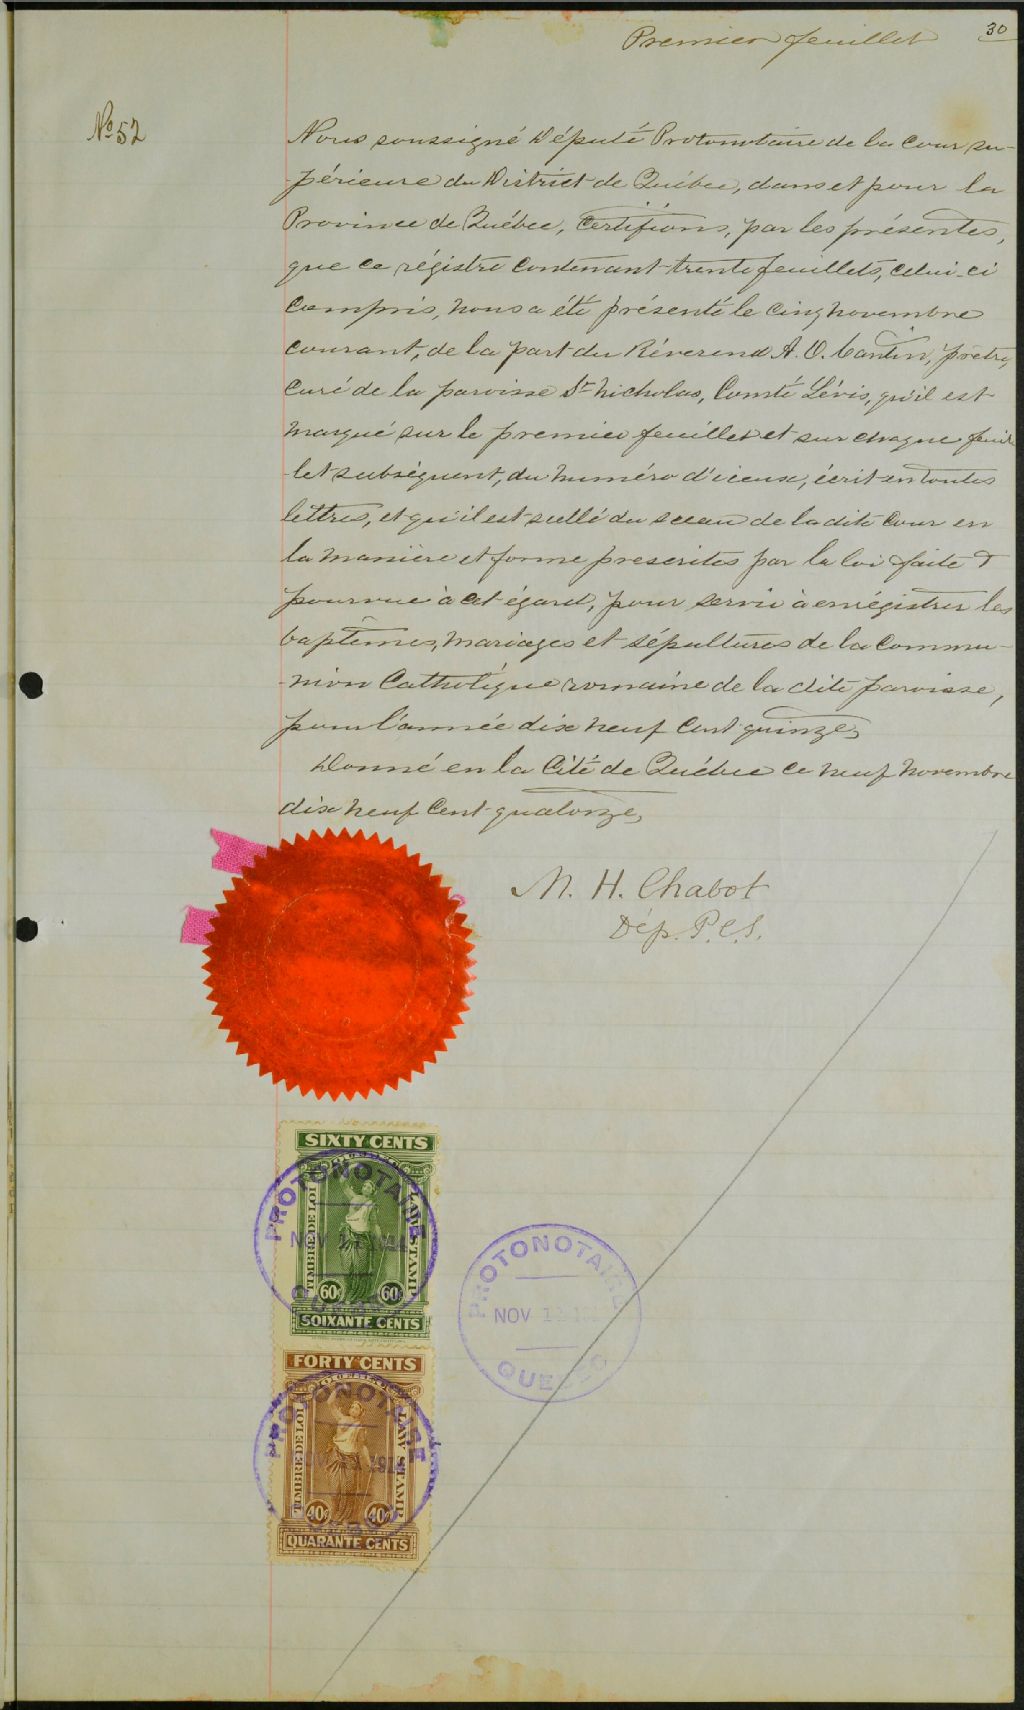 Premier feuillet
30
No 52
Nous soussigné Député Protonotaire de la Cour su-
-périeure du District de Québec, dans et pour la
Province de Québec, Certifions, par les présentes,
que ce régistre contenant trente feuillets, celui-ci
compris, nous a été présenté le cinq novembre
courant, de la part du Réverend A. O. Cantin, prêtre,
curé de la paroisse St Nicholas, Comté Lévis, qu'il est
marqué sur le premier feuillet et sur chaque feuil
-let subséquent, du numéro d'iceux, écrit en toutes
lettres, et qu'il est scellé du sceau de la dite Cour en
la manière et forme prescrites par la loi faite &
pourvue à cet égard, pour servir à enrégistrer les
baptêmes, mariages et sépultures de la Commu-
-nion Catholique romaine de la dite paroisse,
pour l'année dix neuf cent quinze,
Donné en la Cité de Québec ce neuf novembre
dix neuf Cent quatorze,
M. H. Chabot
Dép. P.C.S.
SIXTY CENTS
TIMBRE DE LOI
LAW STAMP
60¢ 60¢
SOIXANTE CENTS
PROTONOTAIRE
NOV
PROTONOTAIRE
NOV 12
QUEBEC
FORTY CENTS
TIMBRE DE LOI
LAW STAMP
40¢ 40¢
QUARANTE CENTS
PROTONOTAIRE